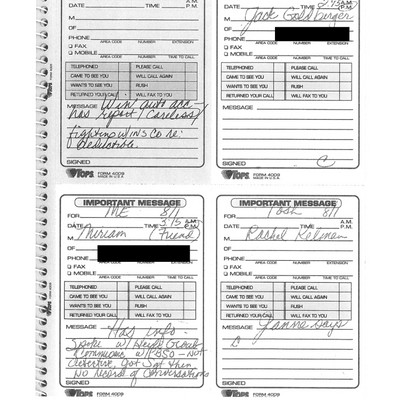 DATE TIME 3:45 A.M. P.M.
Jack Goldberger
OF
PHONE
AREA CODE NUMBER EXTENSION
FAX
MOBILE
AREA CODE NUMBER TIME TO CALL
TELEPHONED PLEASE CALL
CAME TO SEE YOU WILL CALL AGAIN
WANTS TO SEE YOU RUSH
RETURNED YOUR CALL WILL FAX TO YOU
MESSAGE
SIGNED
TOPS FORM 4009
MADE IN U.S.A.
M
OF
PHONE
AREA CODE NUMBER EXTENSION
FAX
MOBILE
AREA CODE NUMBER TIME TO CALL
TELEPHONED PLEASE CALL
CAME TO SEE YOU WILL CALL AGAIN
WANTS TO SEE YOU RUSH
RETURNED YOUR CALL WILL FAX TO YOU
MESSAGE Win auto
has report / Careless
fighting w/ INS Co re:
deductible.
SIGNED
TOPS FORM 4009
MADE IN U.S.A.
IMPORTANT MESSAGE
FOR ME 8/1
DATE TIME 3:15 A.M. P.M.
M Miriam (Friend)
OF
PHONE
AREA CODE NUMBER EXTENSION
FAX
MOBILE
AREA CODE NUMBER TIME TO CALL
TELEPHONED PLEASE CALL
CAME TO SEE YOU WILL CALL AGAIN
WANTS TO SEE YOU RUSH
RETURNED YOUR CALL WILL FAX TO YOU
MESSAGE Has info -
Spoke w/
w/ PBSO - Not
detective, got
NO Record of Conversations
SIGNED
TOPS FORM 4009
IMPORTANT MESSAGE
FOR Josh 8/1
DATE TIME A.M. P.M.
M Rachel
OF
PHONE
AREA CODE NUMBER EXTENSION
FAX
MOBILE
AREA CODE NUMBER TIME TO CALL
TELEPHONED PLEASE CALL
CAME TO SEE YOU WILL CALL AGAIN
WANTS TO SEE YOU RUSH
RETURNED YOUR CALL WILL FAX TO YOU
MESSAGE
SIGNED
TOPS FORM 4009